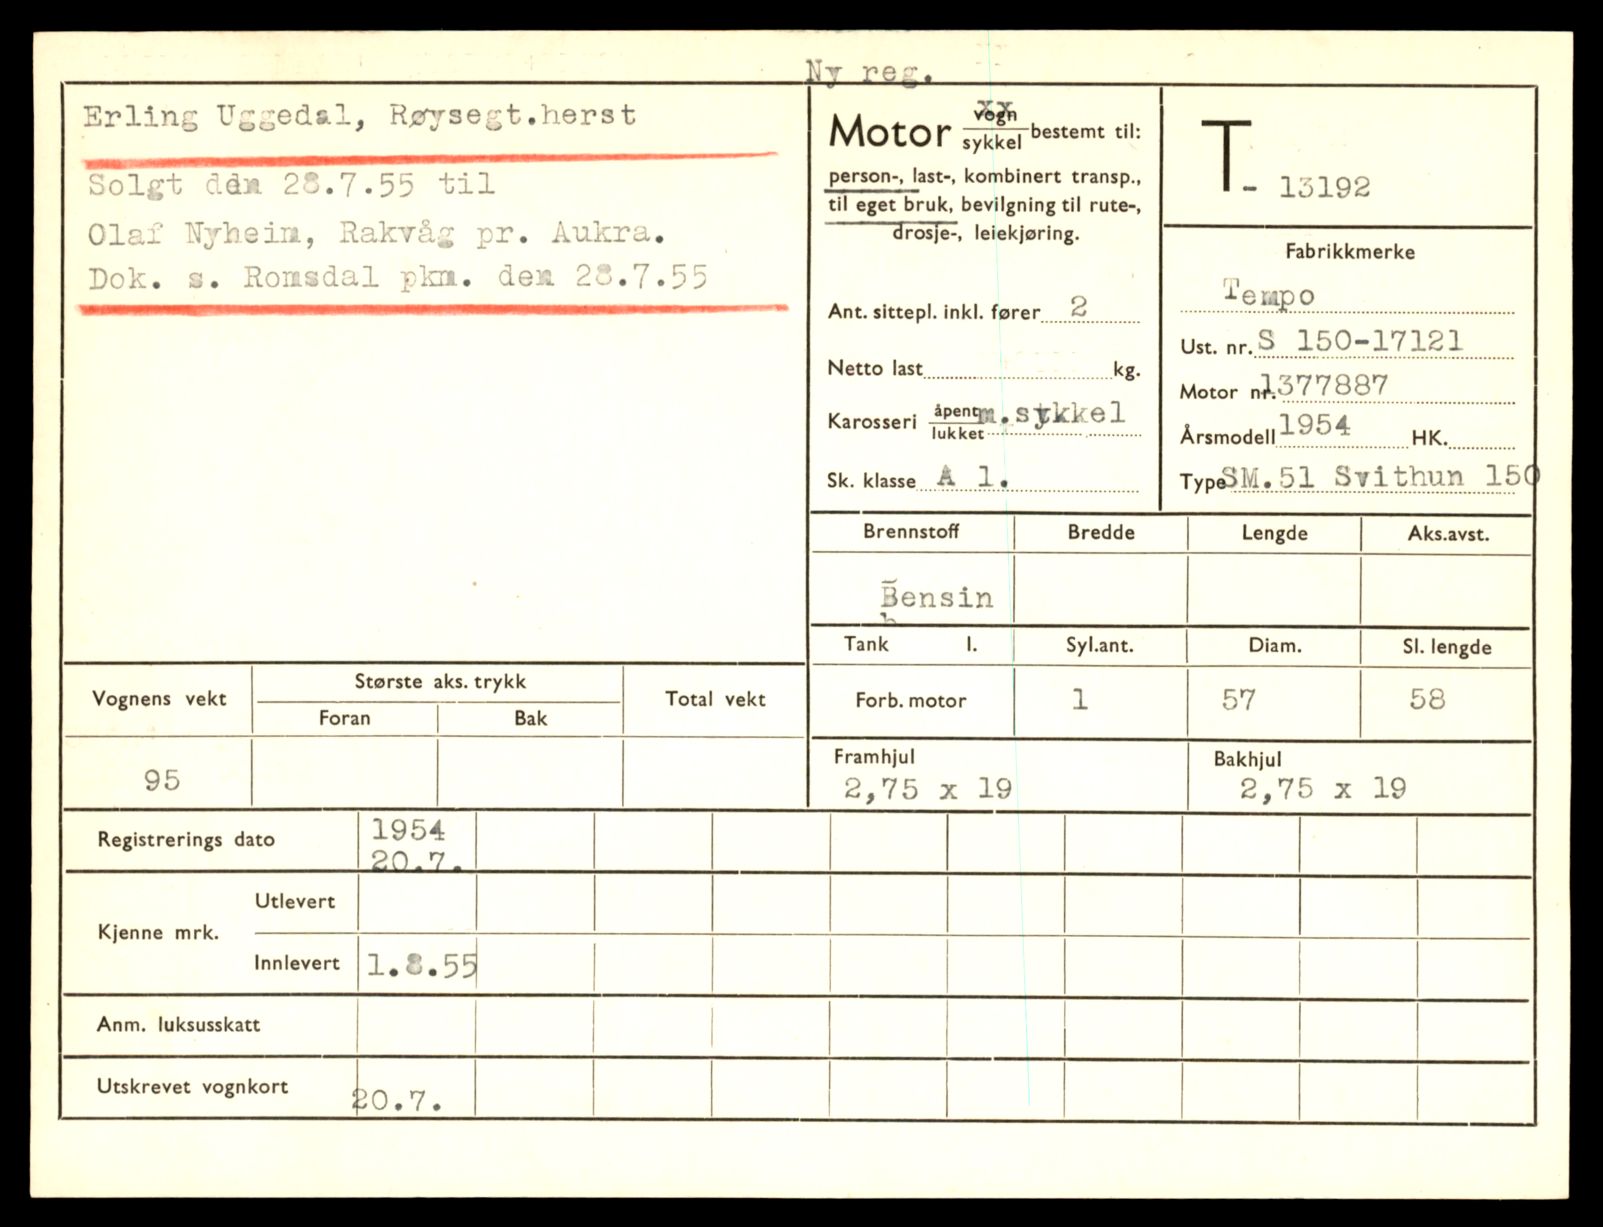 Ny reg.
Erling Uggedal, Røysegt.herst
Solgt den 28.7.55 til
Olaf Nyheim, Rakvåg pr. Aukra.
Dok. s. Romsdal pkm. den 28.7.55
Motor vogn/sykkel bestemt til:
person-, last-, kombinert transp.,
til eget bruk, bevilgning til rute-,
drosje-, leiekjøring.
Ant. sittepl. inkl. fører 2
Netto last kg.
Karosseri åpent/lukket m.sykkel
Sk. klasse A 1.
T- 13192
Fabrikkmerke
Tempo
Ust. nr. S 150-17121
Motor nr. 1377887
Årsmodell 1954 HK.
Type SM.51 Svithun 150
Brennstoff Bredde Lengde Aks.avst.
Bensin
Tank l. Syl.ant. Diam. Sl. lengde
Forb. motor 1 57 58
Framhjul Bakhjul
2,75 x 19 2,75 x 19
Vognens vekt Største aks. trykk Total vekt
Foran Bak
95
Registrerings dato 1954
20.7.
Kjenne mrk.
Utlevert
Innlevert 1.8.55
Anm. luksusskatt
Utskrevet vognkort 20.7.